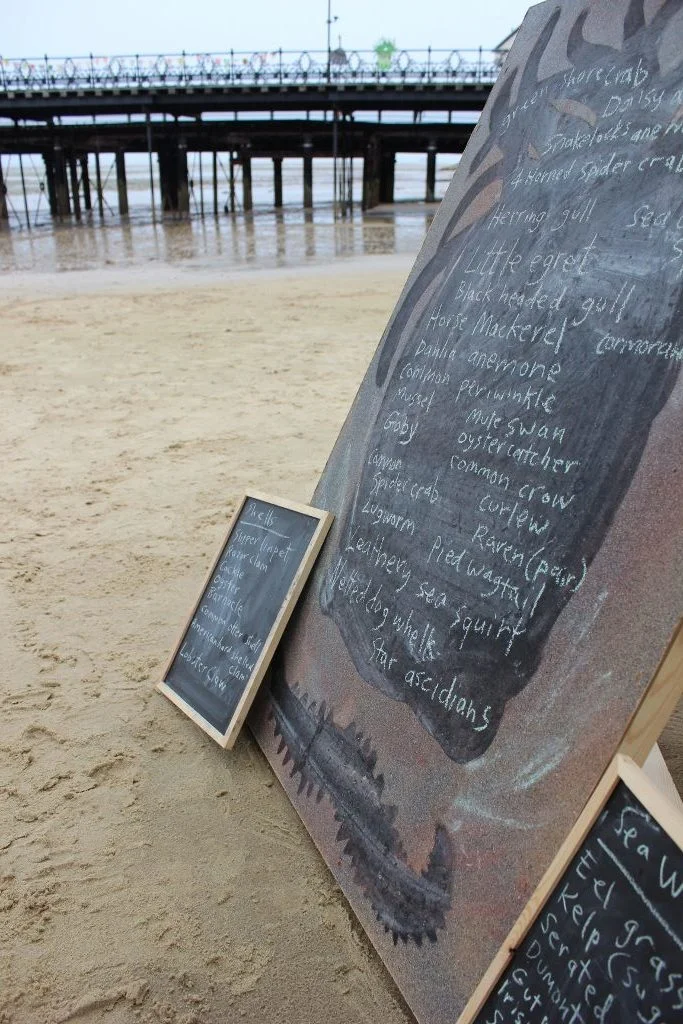 green shore crab
Daisy a
Snakelocks anem
4 Horned spider crab
Herring gull Sea
Little egret
Black headed gull
Horse Mackerel cormorant
Dahlia anemone
Common periwinkle
Mussel Mute swan
Goby oystercatcher
common common crow
spider crab curlew
Lugworm Raven (pair)
Pied wagtail
Leathery sea squirt
Netted dog whelk
Star ascidians
Shells
Slipper limpet
Razor clam
Cockle
Oyster
Barnacle
Common otter shell
American hard shelled
clam
Lobster claw
Sea W
Eel grass
Kelp (sug
Serated
Dumont
Gut
Iris